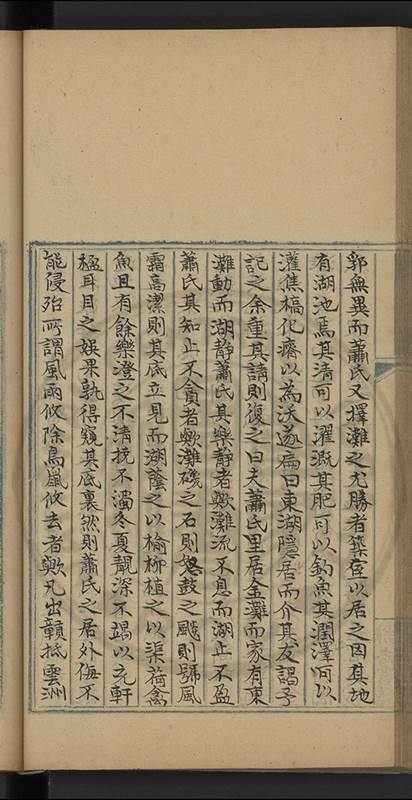 郭無異而蕭氏又擇灘之尤勝者築室以居之因其地
有湖池焉其清可以濯溉其肥可以釣魚其潤澤可以
灌焦槁化瘠以為沃遂扁曰東湖隱居而介其友謁予
記之余重其請則復之曰夫蕭氏里居金灘而家有東
灘動而湖靜蕭氏其樂靜者歟灘流不息而湖止不盈
蕭氏其知止不貪者歟灘磯之石則怒鼓之颷則號風
霜高潔則其底立見而湖蔭之以榆柳植之以渠荷禽
魚且有餘樂澄之不清撓不濁冬夏靚深不竭以充軒
楹耳目之娛果孰得窺其底裏然則蕭氏之居外侮不
能侵殆所謂風雨攸除鳥鼠攸去者歟凡出贛抵雲洲